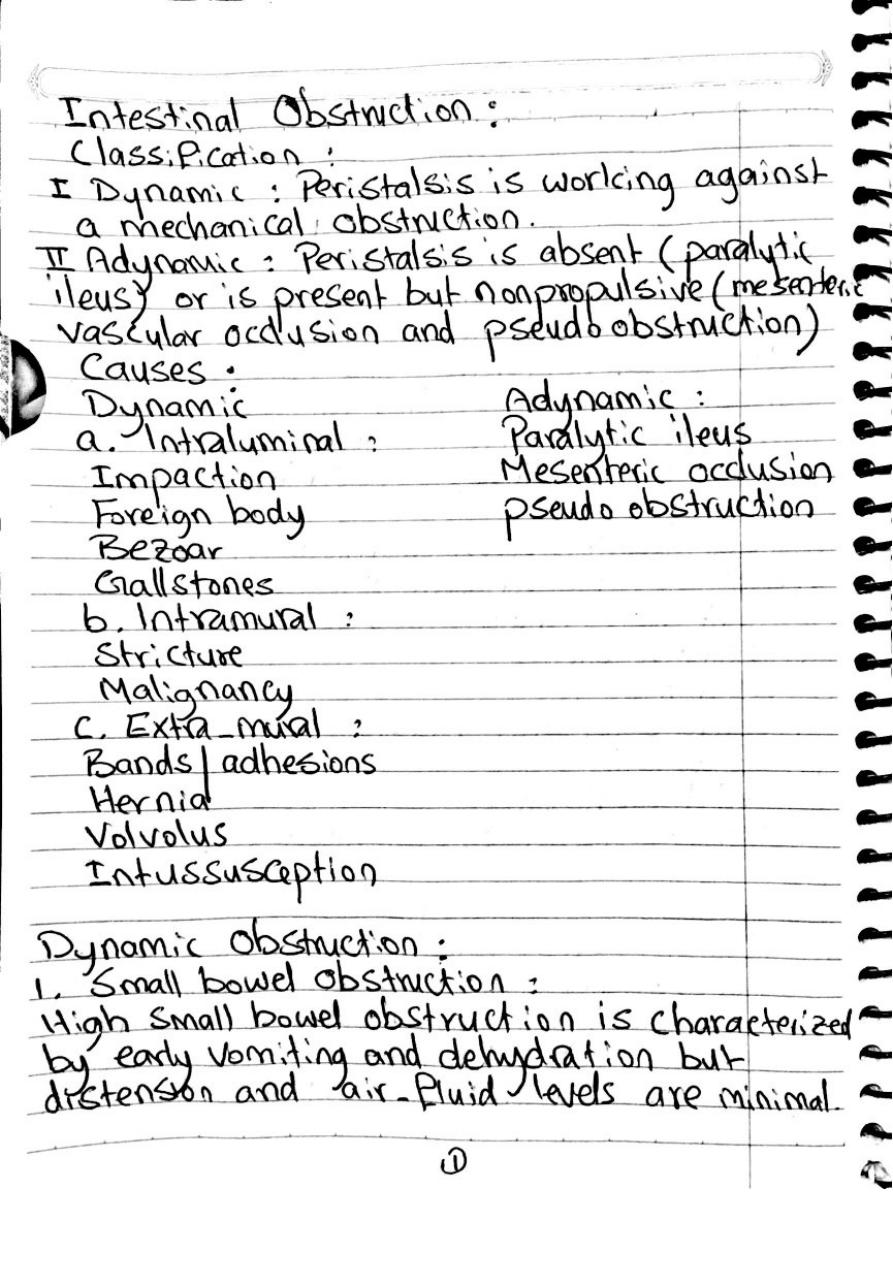 Intestinal Obstruction :
Classification :
I Dynamic : Peristalsis is working against
a mechanical obstruction.
II Adynamic : Peristalsis is absent (paralytic
ileus) or is present but nonpropulsive (mesenteric
vascular occlusion and pseudo obstruction)
Causes :
Dynamic
a. Intraluminal :
Impaction
Foreign body
Bezoar
Gallstones
b. Intramural :
Stricture
Malignancy
c. Extra-mural :
Bands/adhesions
Hernia
Volvolus
Intussusception
Adynamic :
Paralytic ileus
Mesenteric occlusion
pseudo obstruction
Dynamic Obstruction :
1. Small bowel obstruction :
High small bowel obstruction is characterized
by early vomiting and dehydration but
distension and air-fluid levels are minimal.
1